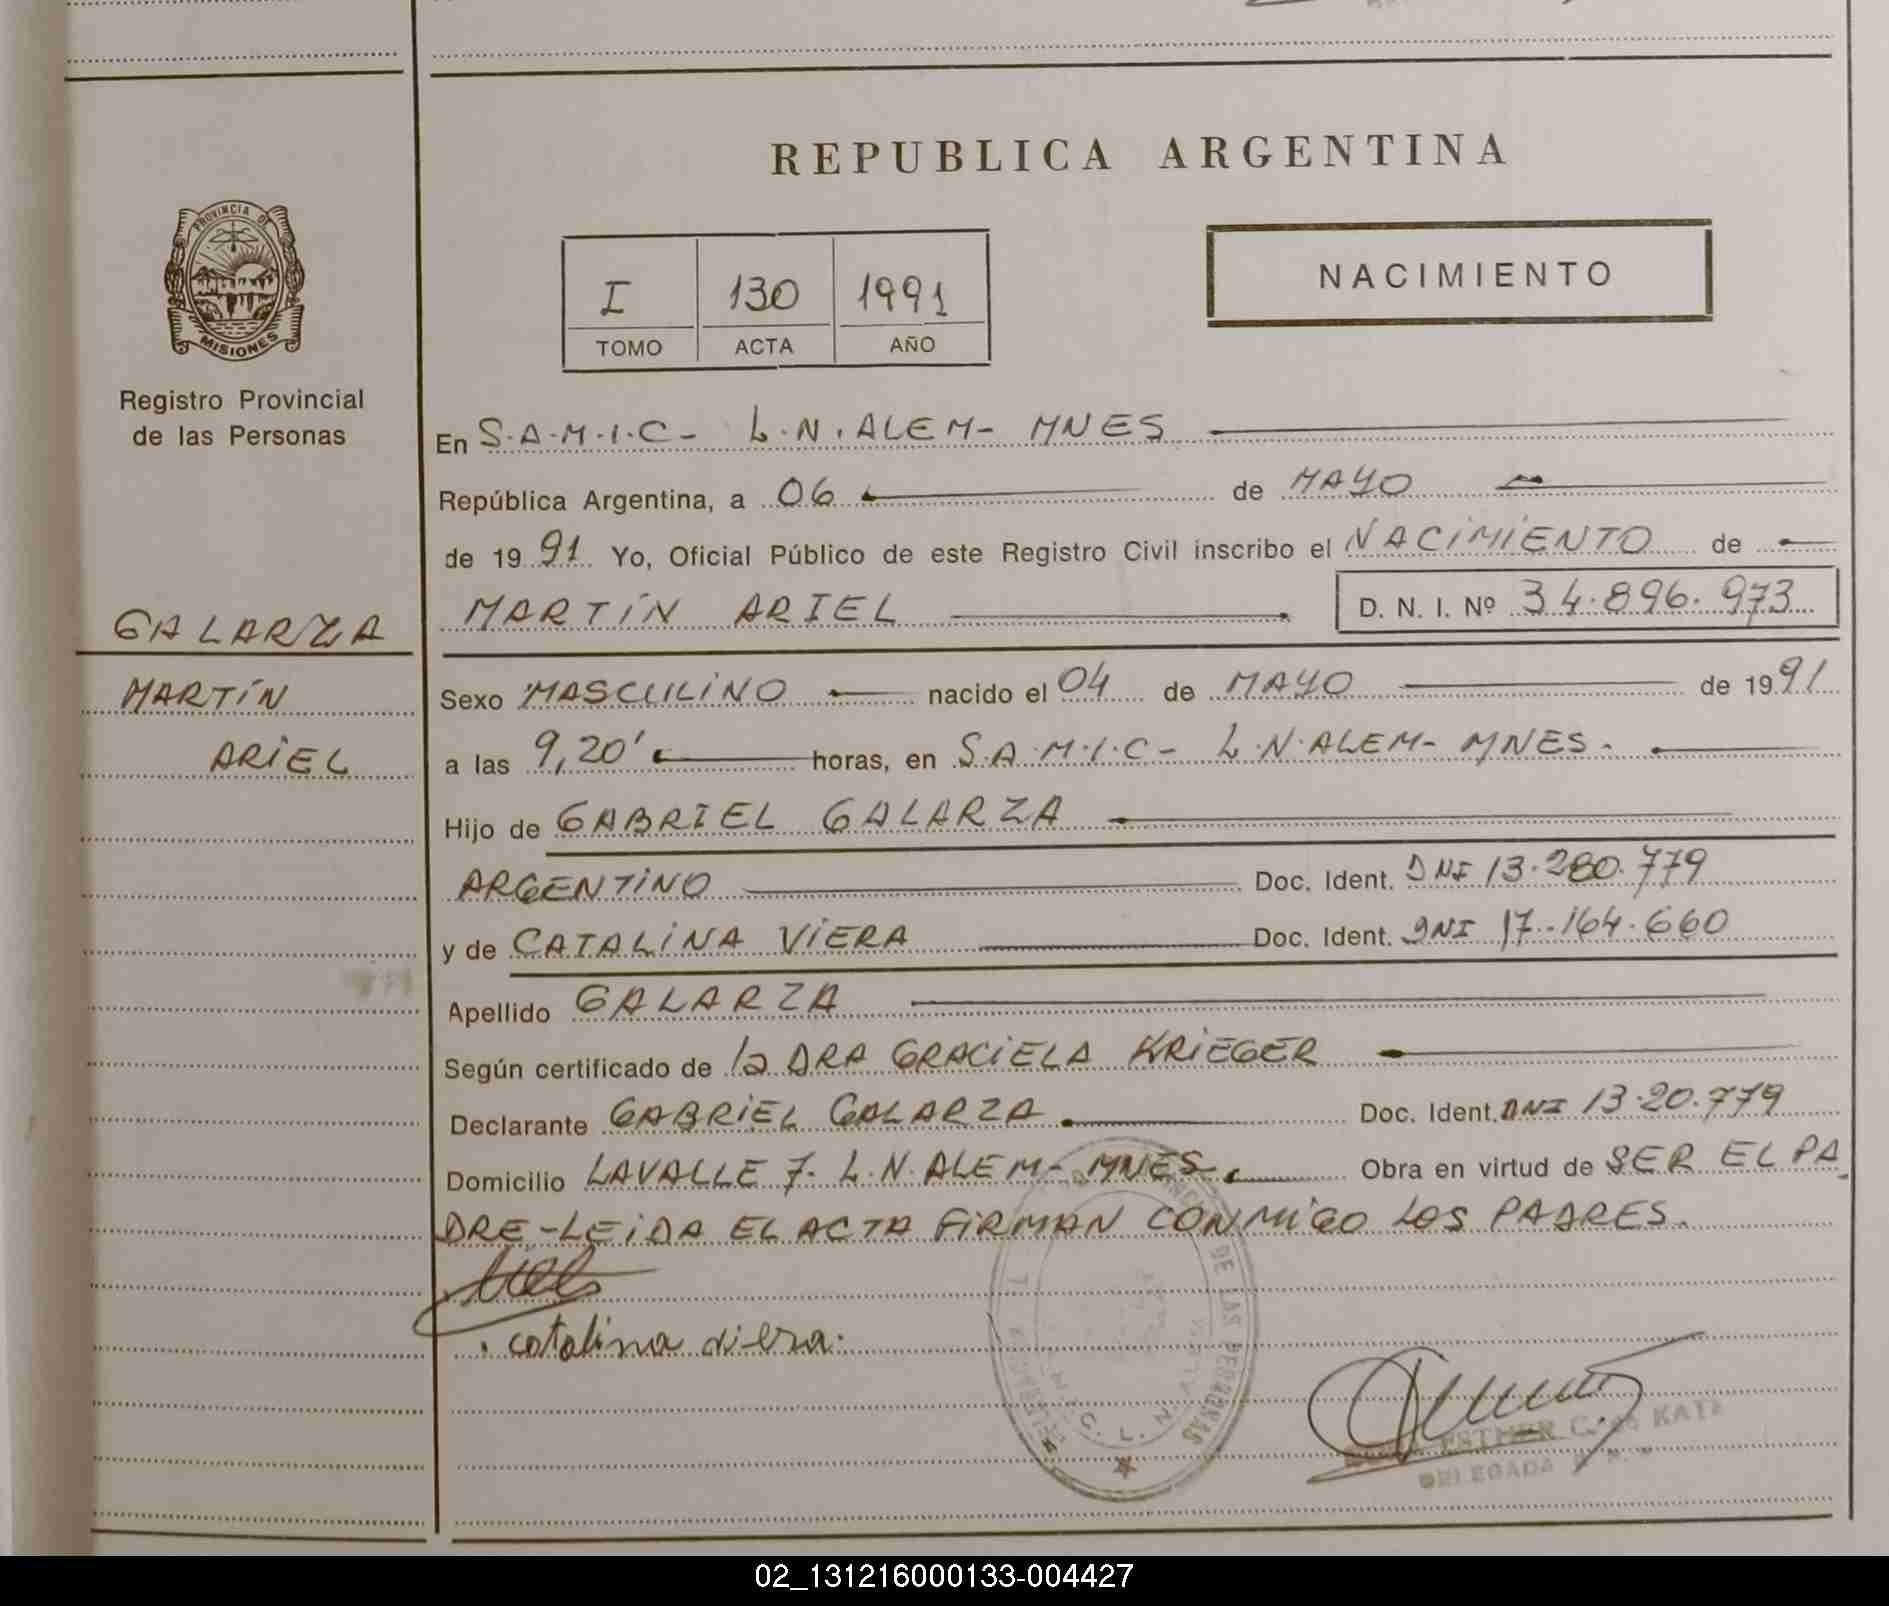 REPUBLICA ARGENTINA
PROVINCIA DE
MISIONES
Registro Provincial
de las Personas
I 130 1991
TOMO ACTA AÑO
NACIMIENTO
En S.A.M.I.C- L.N.ALEM- MNES
República Argentina, a 06 de MAYO
de 1991 Yo, Oficial Público de este Registro Civil inscribo el NACIMIENTO de
MARTÍN ARIEL D. N. I. Nº 34.896.973
GALARZA
MARTÍN
ARIEL
Sexo MASCULINO nacido el 04 de MAYO de 1991
a las 9,20' horas, en S.A.M.I.C- L.N.ALEM- MNES.
Hijo de GABRIEL GALARZA
ARGENTINO Doc. Ident. DNI 13.280.779
y de CATALINA VIERA Doc. Ident. DNI 17.164.660
Apellido GALARZA
Según certificado de la DRA GRACIELA KRIEGER
Declarante GABRIEL GALARZA Doc. Ident. DNI 13.20.779
Domicilio LAVALLE 7. L.N.ALEM- MNES. Obra en virtud de SER EL PA
DRE-LEIDA EL ACTA FIRMAN CONMIGO LOS PADRES.
catalina viera.
DE LAS PERSONAS
L. N. AL
ESTHER C. de KATZ
DELEGADA
02_131216000133-004427